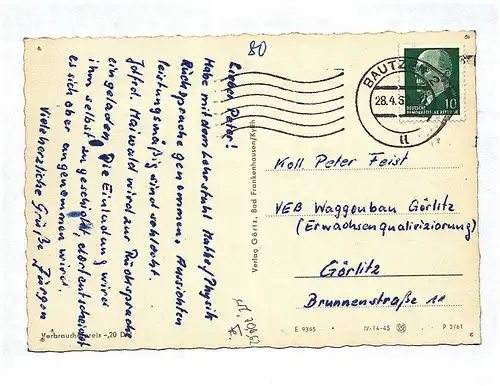 80
Lieber Peter!
Habe mit dem Lehrstuhl Mathe/Physik
Rücksprache genommen. Aussichten
leistungsmäßig sind schlecht.
Maiwald wird zur Rücksprache
eingeladen. Die Einladung wird
ihm selbst zugeschickt, dort entscheidet
es sich ober angenommen wird.
Viele herzliche Grüße Jürgen
Verbraucherpreis -,20 D
Verlag Görtz, Bad Frankenhausen/Kyffh.
BAUTZEN 2
28.4.6
DEUTSCHE
DEMOKRATISCHE REPUBLIK
10
Koll Peter Feist
VEB Waggonbau Görlitz
(Erwachsenqualivizierung)
Görlitz
Brunnenstraße 11
E 9345
IV-14-45
P 2/61